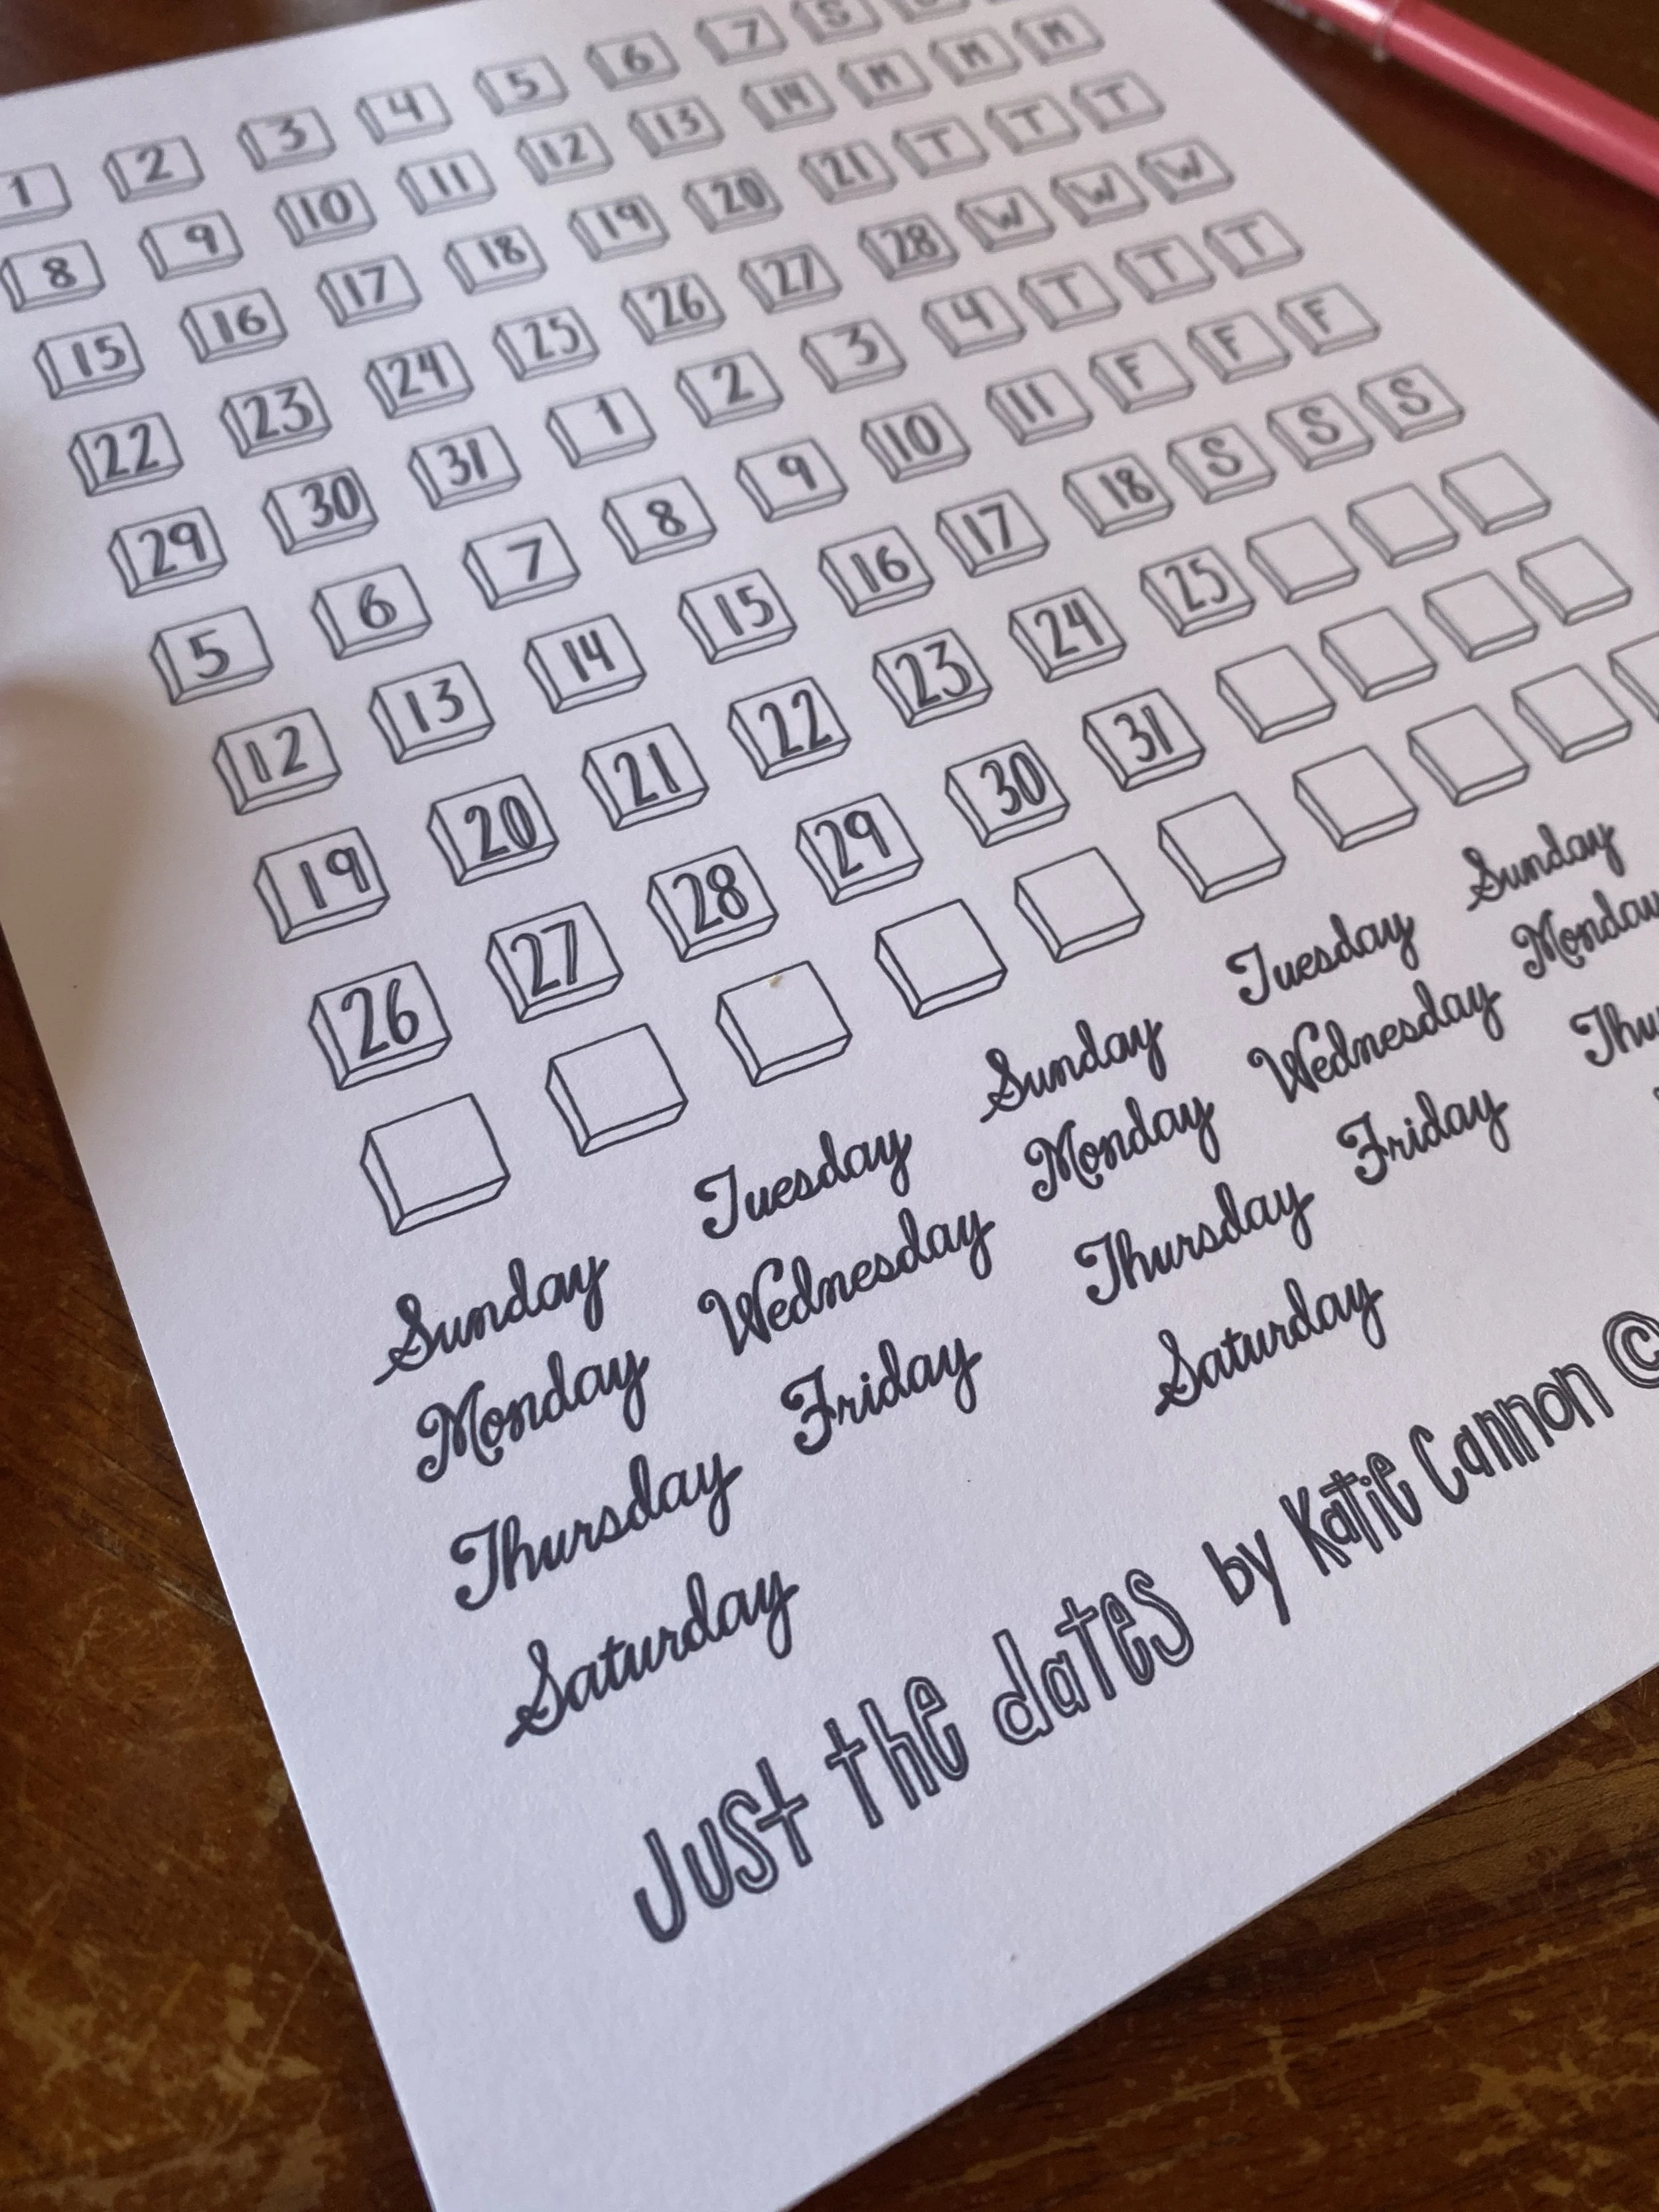 1 2 3 4 5 6 7 S
8 9 10 11 12 13 14 M M M
15 16 17 18 19 20 21 T T T
22 23 24 25 26 27 28 W W W
29 30 31 1 2 3 4 T T T
5 6 7 8 9 10 11 F F F
12 13 14 15 16 17 18 S S S
19 20 21 22 23 24 25
26 27 28 29 30 31
Sunday Tuesday Sunday Tuesday Sunday
Monday Wednesday Monday Wednesday Monday
Thursday Friday Thursday Friday Thu
Saturday Saturday
Just the dates by Katie Cannon ©